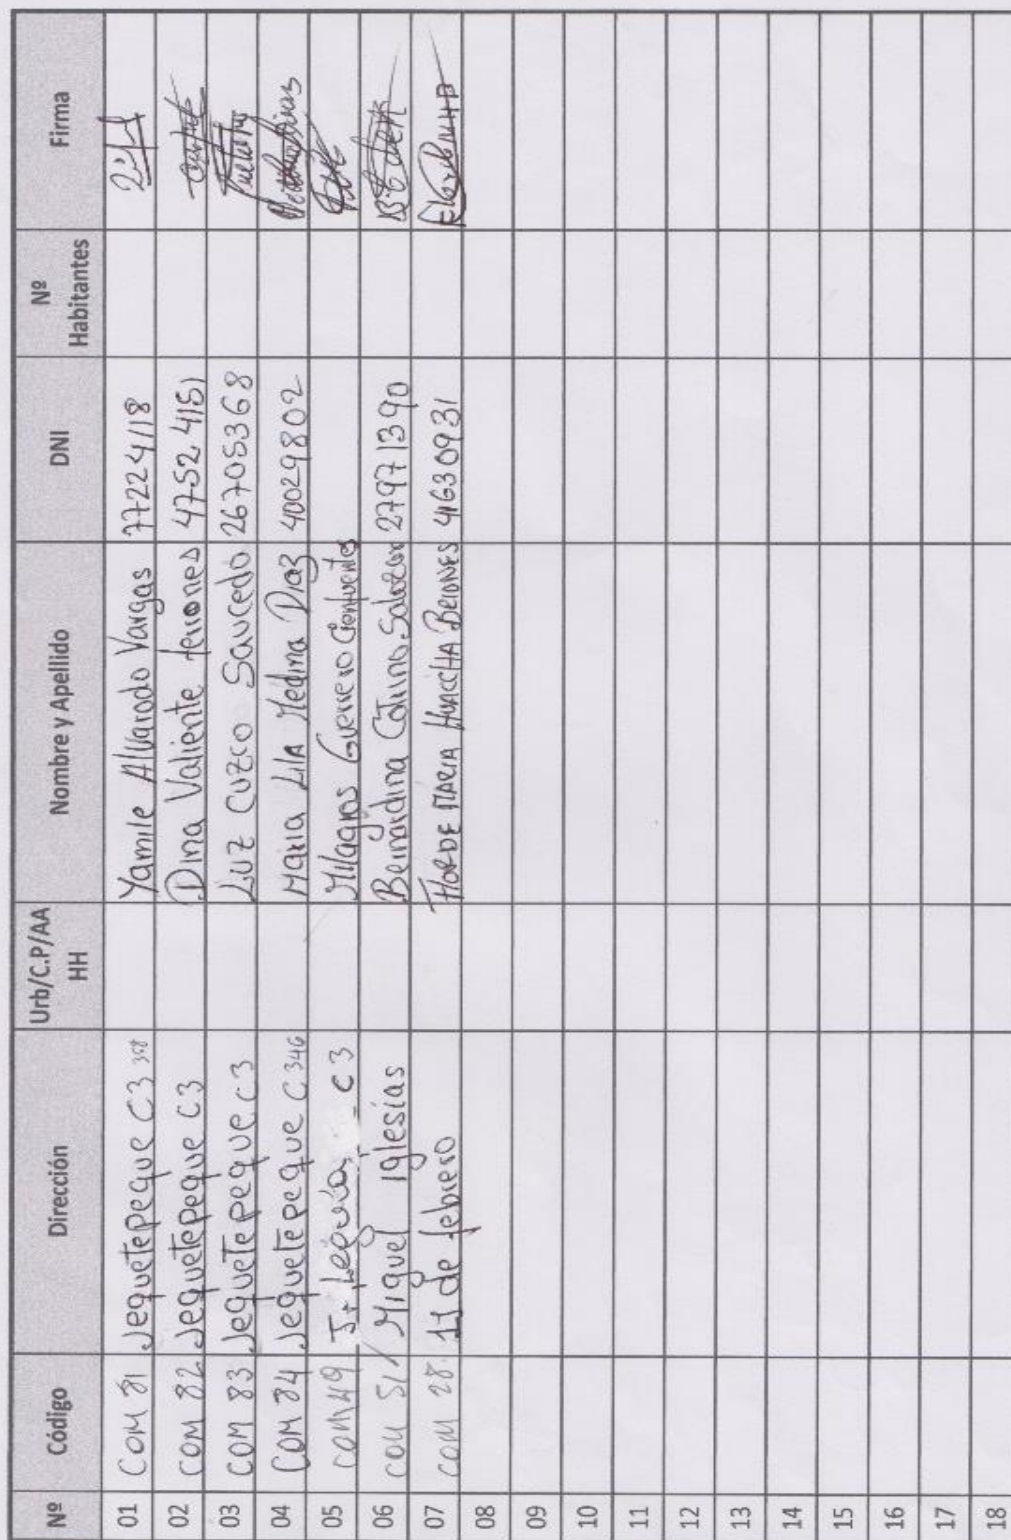 Nº Código Dirección Urb/C.P/AA HH Nombre y Apellido DNI Nº Habitantes Firma
01 COM 81 Jequetepeque C3 358 Yamile Alvarado Vargas 77224118
02 COM 82 Jequetepeque C3 Dina Valiente Terrones 47524151
03 COM 83 Jequetepeque C3 Luz Cuzco Saucedo 26705368
04 COM 84 Jequetepeque C 346 Maria Lila Medina Diaz 40029802
05 COM 49 Leguía C3 Milagros Guerrero Cienfuentes
06 COM 51 Miguel Iglesias Bernardina 27971390
07 COM 28 11 de febrero Flor de María Huaccha 4630931
08
09
10
11
12
13
14
15
16
17
18